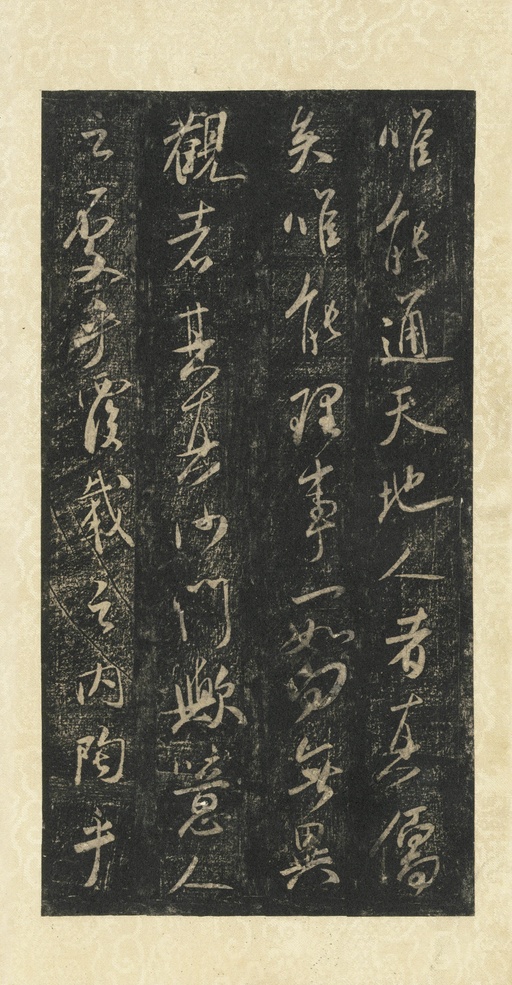 唯能通天地人者真儒
矣唯能理事一如向無異
觀者其真沙門歟噫人
之處乎覆載之内陶乎